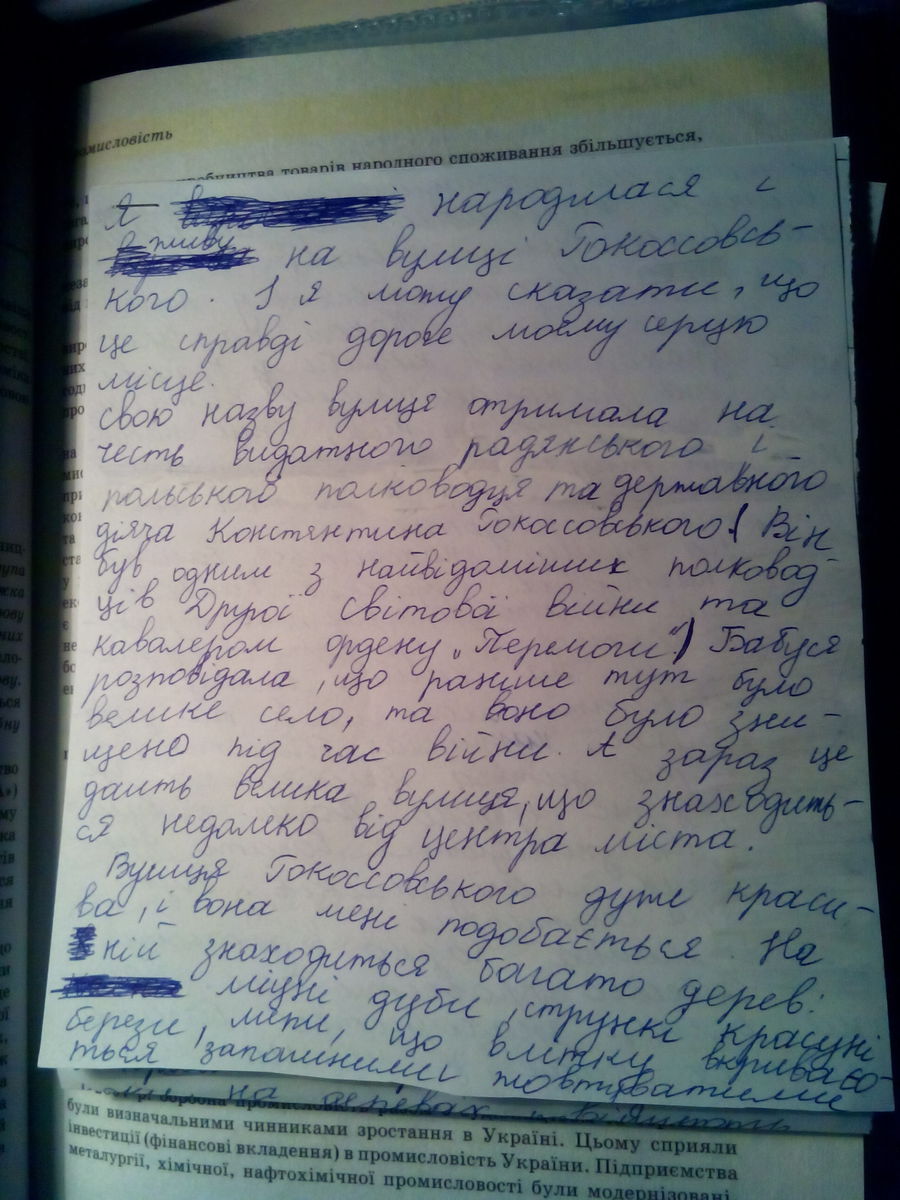 ромисловість
виробництва товарів народного споживання збільшується,
Я народилася і
живу на вулиці Рокоссовсь-
кого. І я можу сказати, що
це справді дороге моєму серцю
місце.
свою назву вулиця отримала на
честь видатного радянського і
польського полководця та державного
діяча Констянтина Рокоссовського. (Він
був одним з найвідоміших полковод-
ців Другої світової війни та
кавалером ордену „Перемоги“) Бабуся
розповідала, що раніше тут було
велике село, та воно було зни-
щено під час війни. А зараз це
дашть велика вулиця, що знаходить-
ся недалеко від центра міста.
Вулиця Рокоссовського дуже краси-
ва, і вона мені подобається. На
ній знаходиться багато дерев:
міцні дуби, стрункі красуні
берези, липи, що влітку вкриваю-
ться запашними жовтуватими
на деревах
були визначальними чинниками зростання в Україні. Цьому сприяли
інвестиції (фінансові вкладення) в промисловість України. Підприємства
металургії, хімічної, нафтохімічної промисловості були модернізовані